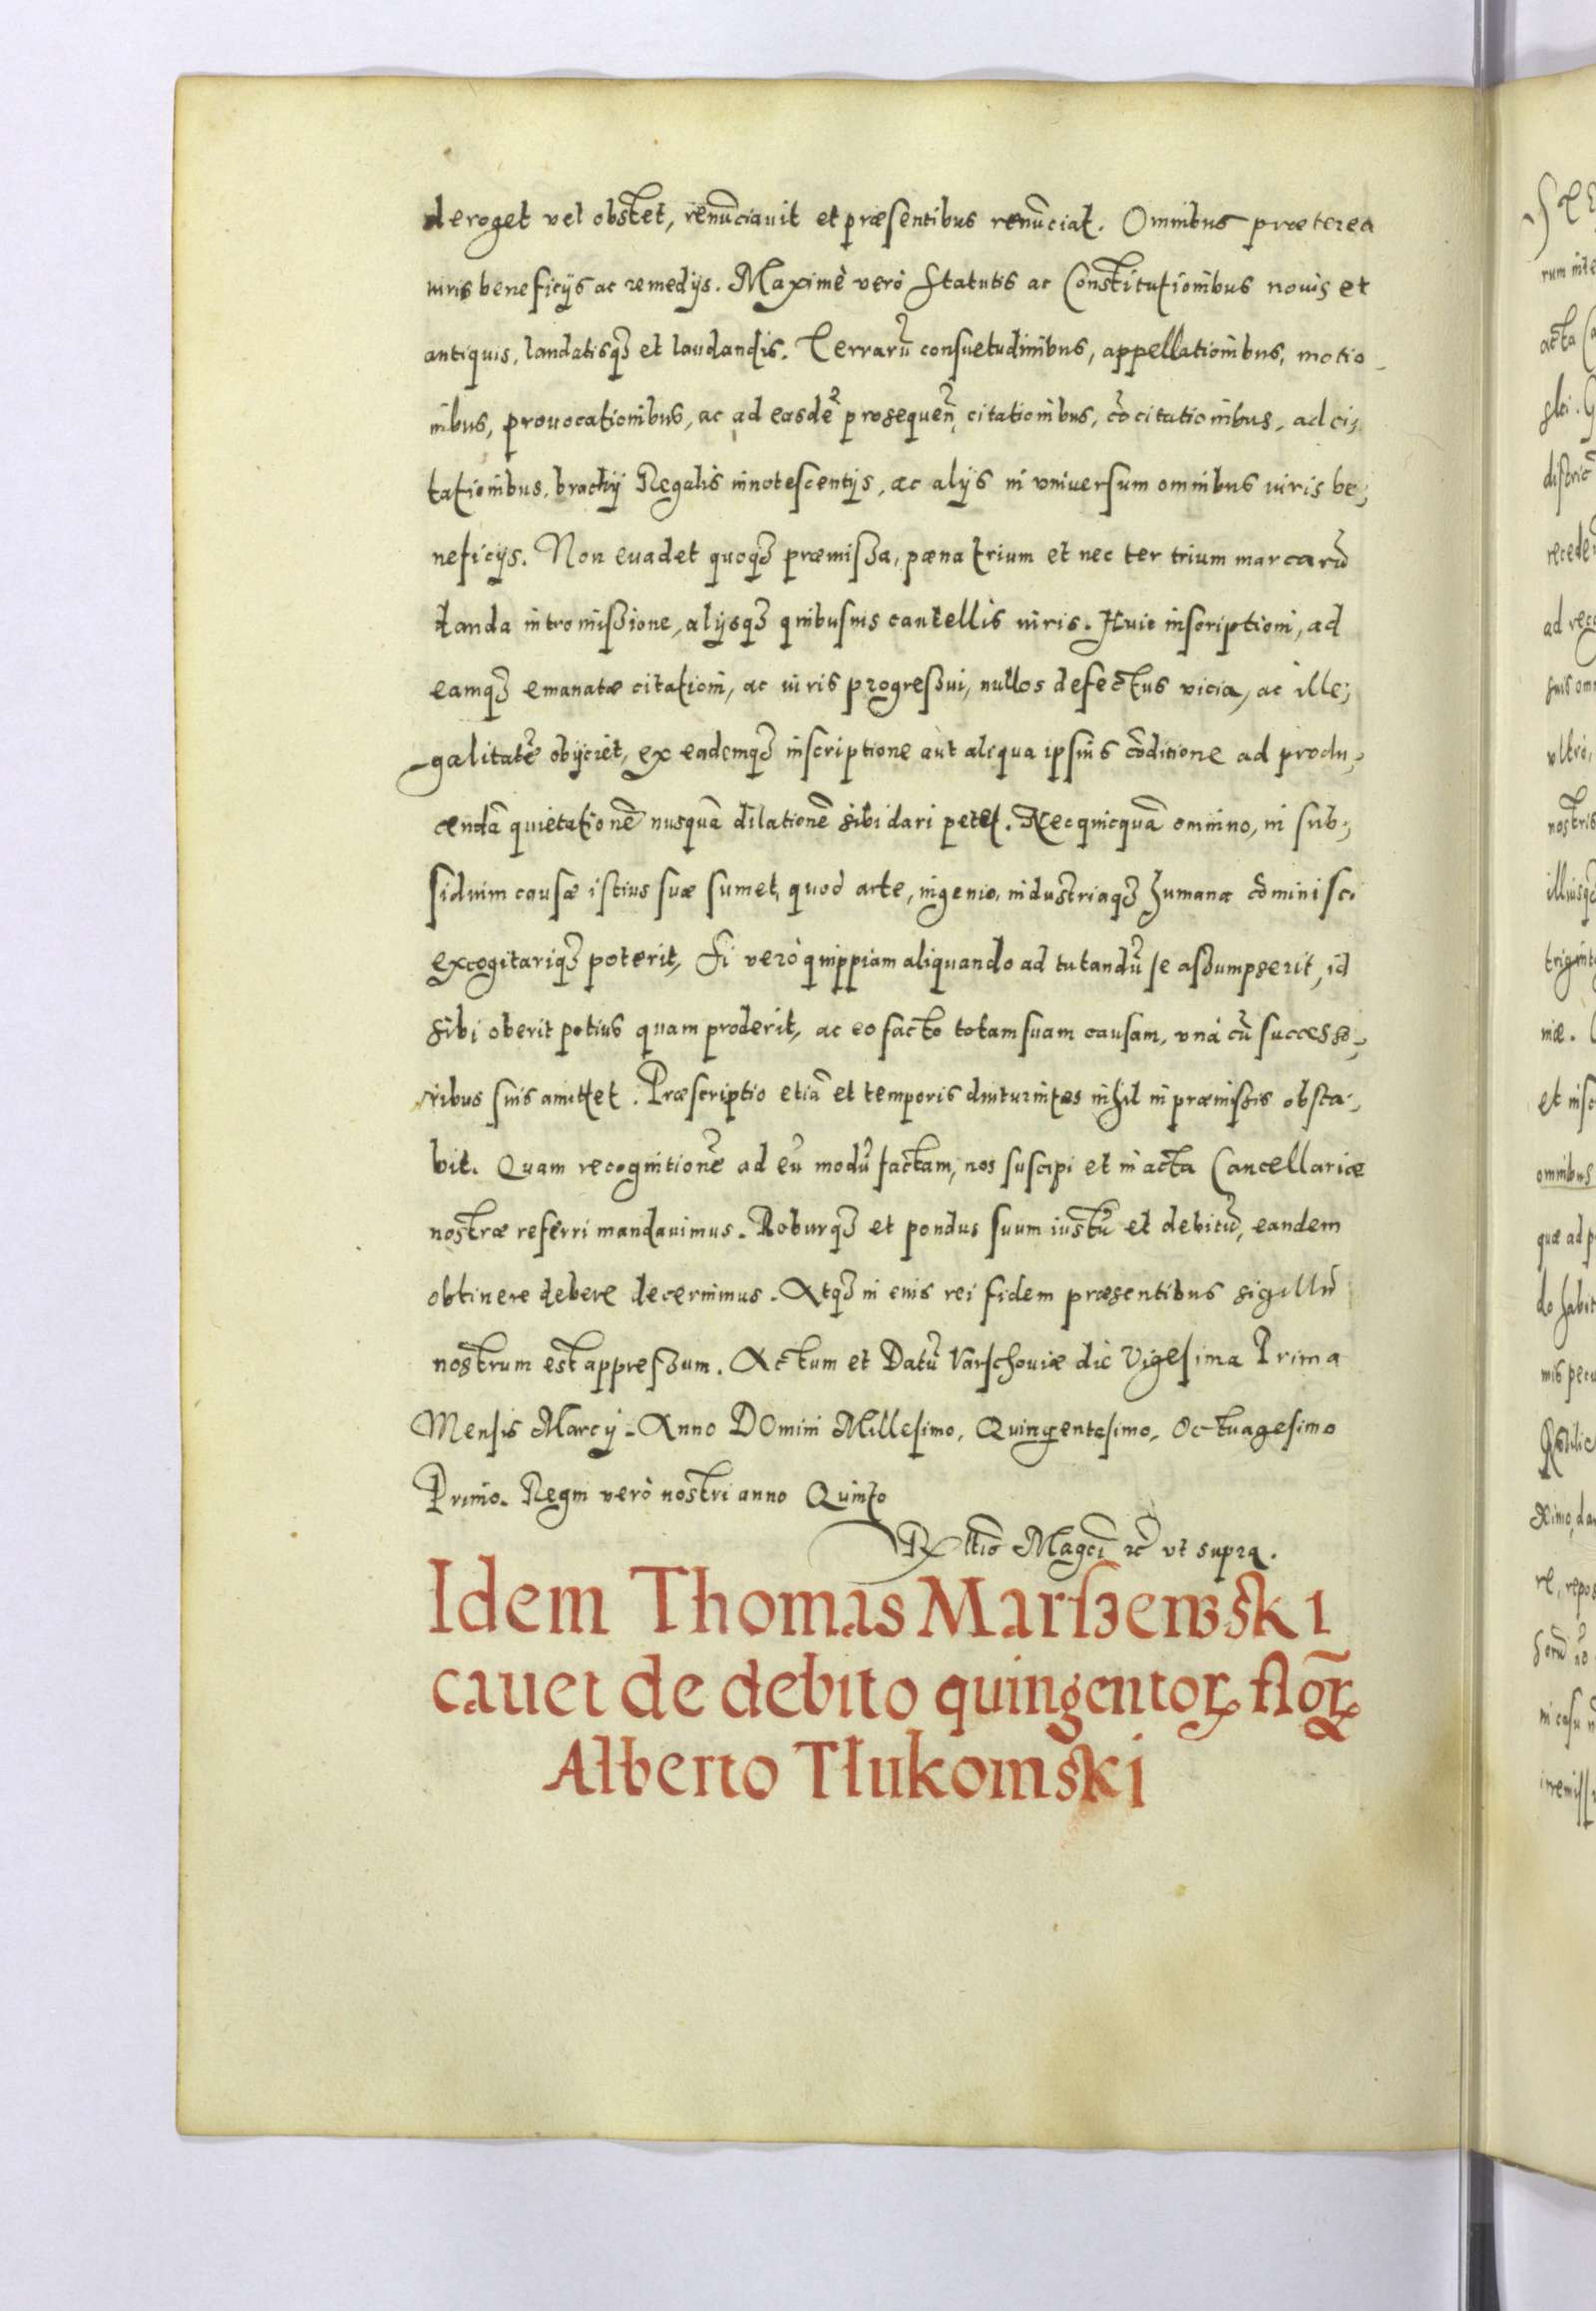 deroget vel obstet, renũciauit et præsentibus renũciat. Omnibus præterea
iuris beneficijs ac remedijs. Maximè verò Statutis ac Constitutionibus nouis et
antiquis, laudatisqȝ et laudandis. Terrarũ consuetudinibus, appellationibus, motio-
nibus, prouocationibus, ac ad easdẽ prosequeñ, citationibus, cõcitationibus, adci,
tationibus, brachij Regalis innotescentijs, ac alijs in vniuersum omnibus iuris be,
neficijs. Non euadet quoqȝ præmissa, pæna trium et nec ter trium marcarũ
danda intromissione, alijsqȝ quibusuis cautellis iuris. Huic inscriptioni, ad
eamqȝ emanatæ citationi, ac iuris progressui, nullos defectus vicia, ac ille,
galitatẽ obijciet, ex eademqȝ inscriptione aut aliqua ipsius cõditione ad produ,
cendã quietationẽ nusquã dilationẽ sibi dari petet. Nec quicquã omnino, in sub,
sidium causæ istius suæ sumet, quod arte, ingenio, industriaqȝ humana cõminisci
excogitariqȝ poterit, Si verò quippiam aliquando ad tutandũ se assumpserit, id
sibi oberit potius quam proderit, ac eo facto totam suam causam, vnà cũ successo,
ribus suis amittet. Præscriptio etiã et temporis diuturnitas nihil in præmissis obsta,
bit. Quam recognitionẽ ad eũ modũ factam, nos suscipi et in acta Cancellariæ
nostræ referri mandauimus. Roburqȝ et pondus suum iustũ et debitũ, eandem
obtinere debere decernimus. Atqȝ in eius rei fidem præsentibus sigillũ
nostrum est appressum. Actum et Datũ Varschouiæ die Vigesima Prima
Mensis Marcij. Anno DOmini Millesimo, Quingentesimo, Octuagesimo
Primo. Regni verò nostri anno Quinto
Rltiõ Magci ꝛc vt supra.
Idem Thomas Marsȝewski
cauet de debito quingentoꝝ floꝝ
Alberto Tlukomski